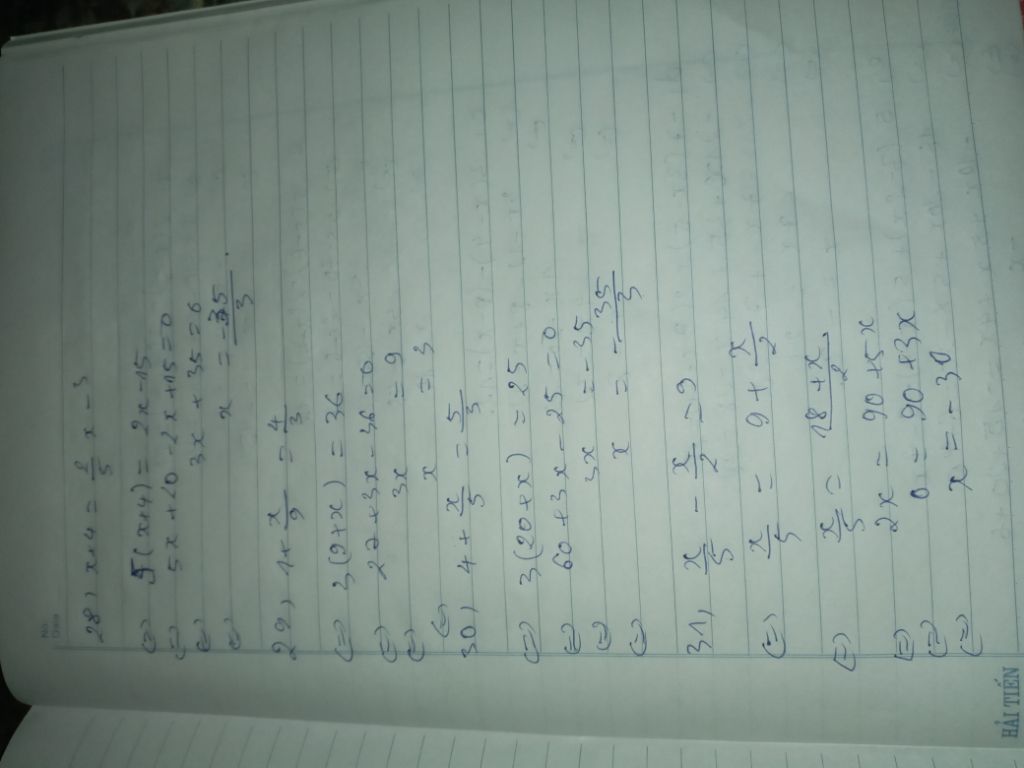 No.
Date
28) x+4 = 2/5 x - 3
(=) 5(x+4) = 2x-15
(=) 5x+20-2x+15=0
(=) 3x+35=0
(=) x = -35/3.
29) 1+ x/9 = 4/3
(=) 3(9+x) = 36
(=) 27+3x-36=0
(=) 3x = 9
(=) x = 3
30) 4+ x/5 = 5/3
(=) 3(20+x) = 25
(=) 60+3x-25=0
(=) 3x = -35
(=) x = - 35/3
31) x/5 - x/2 = 9
(=) x/5 = 9 + x/2
(=) x/5 = 18+x/2
(=) 2x = 90+5x
(=) 0 = 90+3x
(=) x = -30
HẢI TIẾN